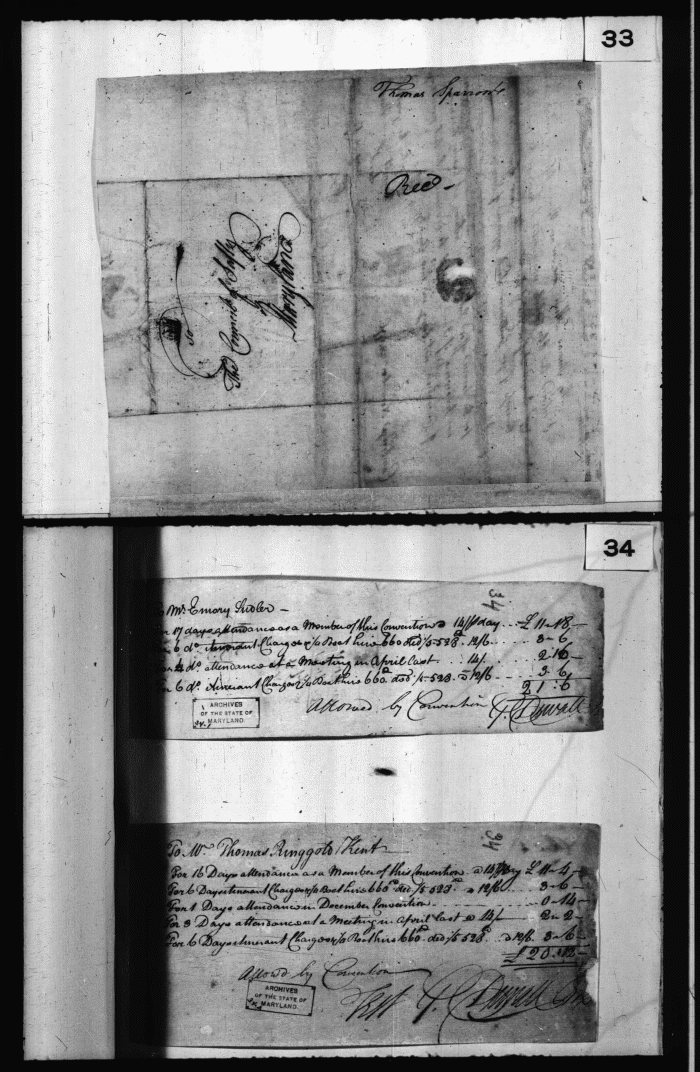 33
Thomas Sparrow's
Recd
To
The Council of Safty
Maryland
34
34
Mr. Emory Sudler
17 days attendance as a Member of this Convention @ 14/ ⅌ day £ 11-18-
6 do. Itinerant Charges &/o Boat hire 660 ded /5-528 @ 12/6 3-6
4 do. attendance at a Meeting in April last 14/ 2 16
6 do. Itinerant Charges &/o Boat hire 660. ded /5-528 @ 12/6 3 6
21.6
Allowed by Convention G. Duvall
ARCHIVES
OF THE STATE OF
MARYLAND.
34
To Mr. Thomas Ringgold Kent
For 16 Days attendance as a Member of this Convention @ 14/ £ 11-4
For 6 Days itenerant Charges &/o Boat hire 660 ded /5 528 @ 12/6 3-6
For 1 Days attendance in December Convention 0-14
For 3 Days attendance at a Meeting in April last @ 14/ 2-2
For 6 Days itenerant Charges &/o Boat hire 660. ded /5 528 @ 12/6. 3-6
£ 20.12
Allowed by Convention
Test G. Duvall
ARCHIVES
OF THE STATE OF
MARYLAND.